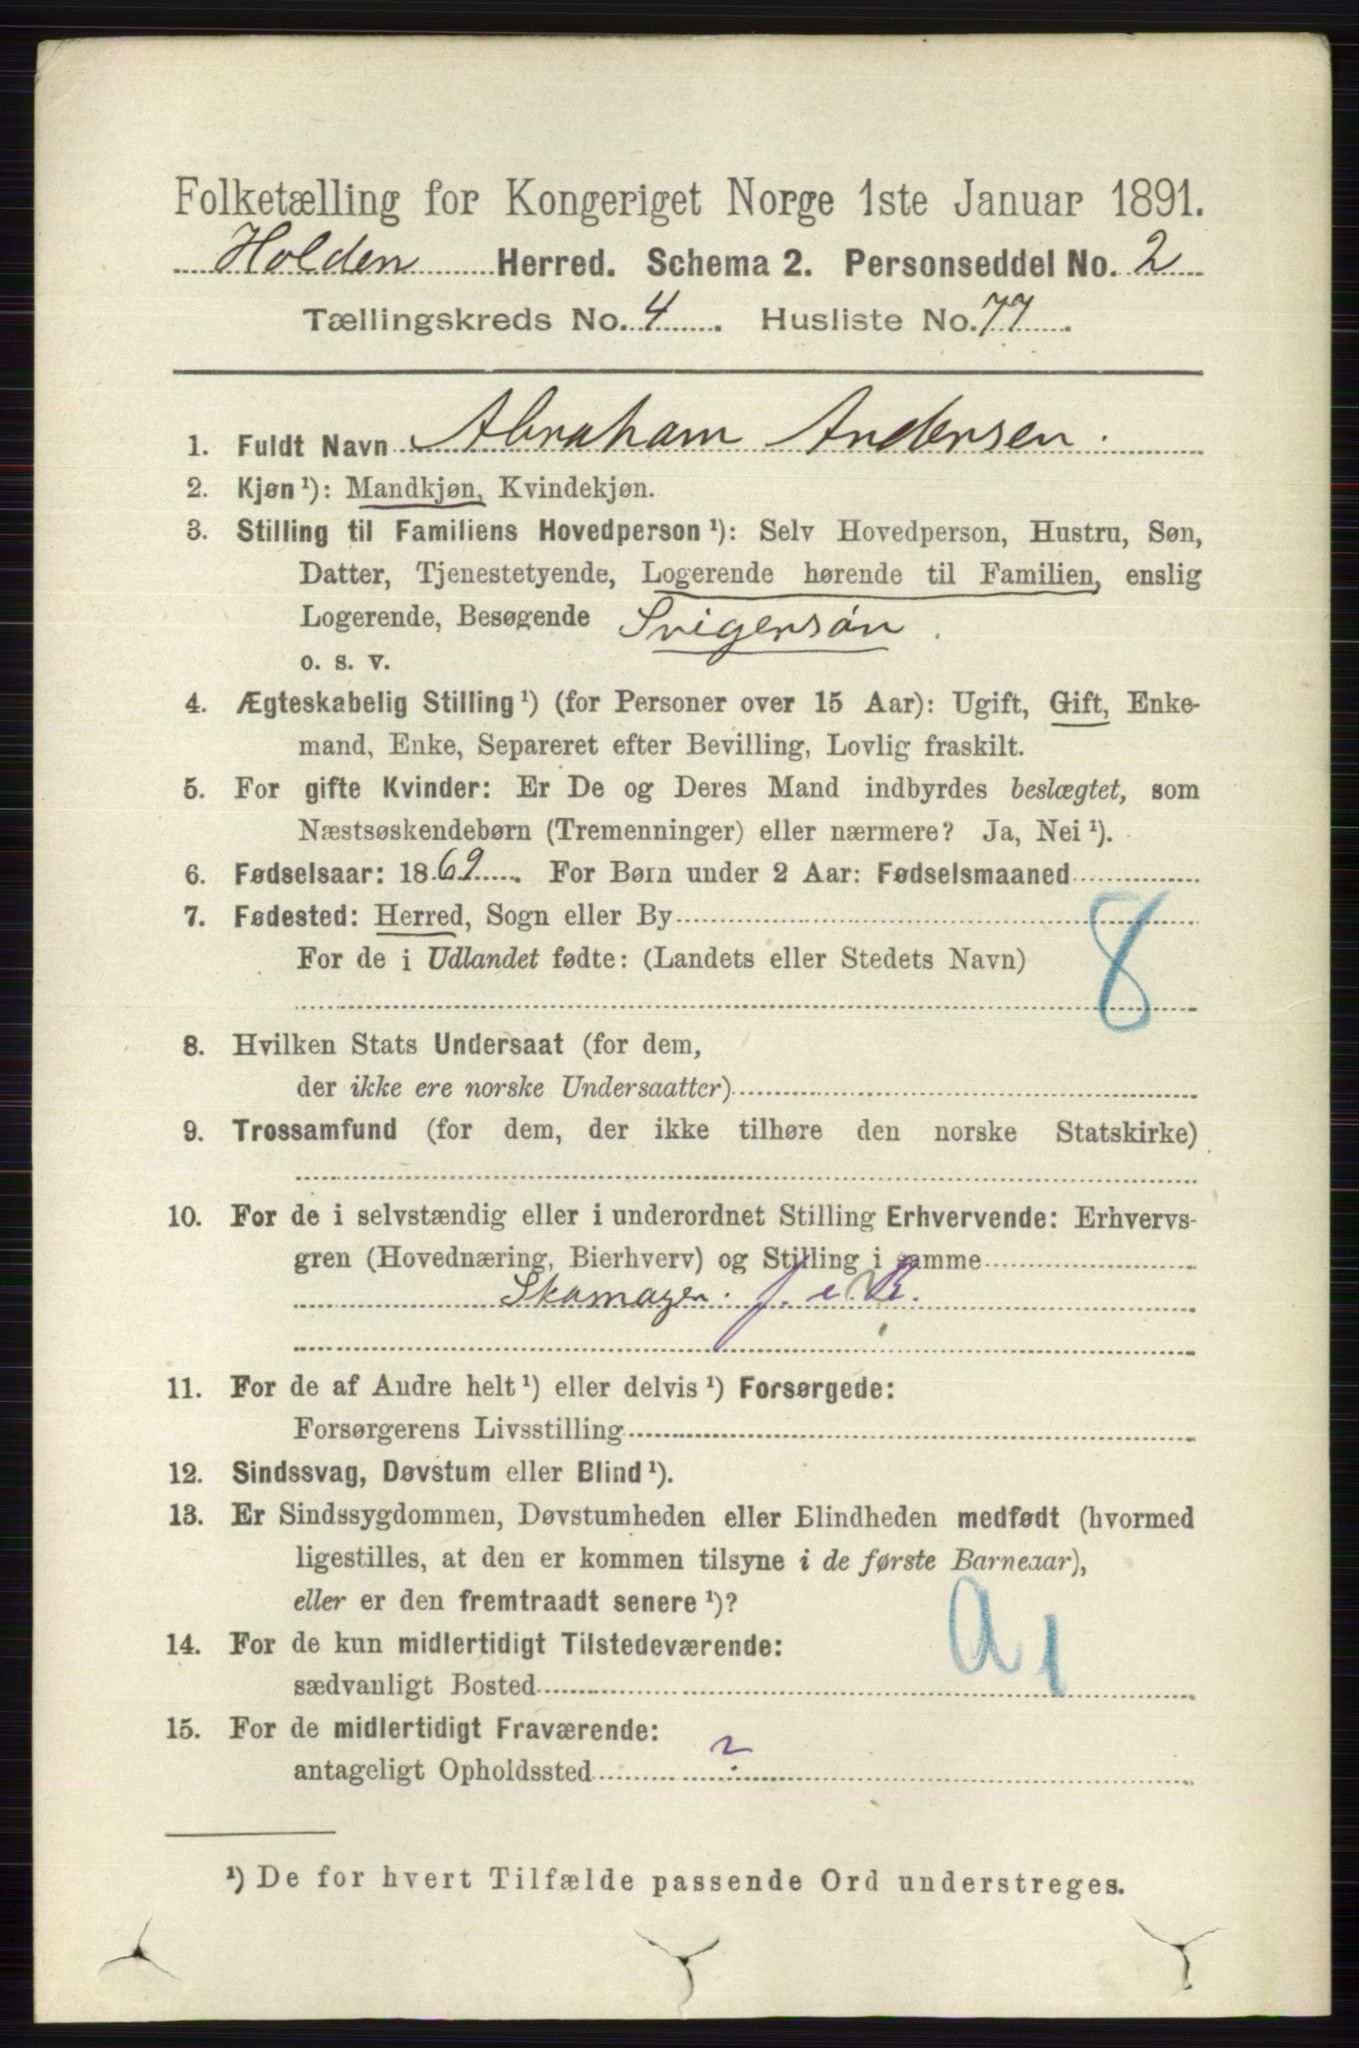 Folketælling for Kongeriget Norge 1ste Januar 1891.
Holden Herred. Schema 2. Personseddel No. 2
Tællingskreds No. 4. Husliste No. 77.
1. Fuldt Navn Abraham Andersen.
2. Kjøn ¹): Mandkjøn, Kvindekjøn.
3. Stilling til Familiens Hovedperson ¹): Selv Hovedperson, Hustru, Søn,
Datter, Tjenestetyende, Logerende hørende til Familien, enslig
Logerende, Besøgende Svigersøn.
o. s. v.
4. Ægteskabelig Stilling ¹) (for Personer over 15 Aar): Ugift, Gift, Enke-
mand, Enke, Separeret efter Bevilling, Lovlig fraskilt.
5. For gifte Kvinder: Er De og Deres Mand indbyrdes beslægtet, som
Næstsøskendebørn (Tremenninger) eller nærmere? Ja, Nei ¹).
6. Fødselsaar: 1869. For Børn under 2 Aar: Fødselsmaaned
7. Fødested: Herred, Sogn eller By
8
For de i Udlandet fødte: (Landets eller Stedets Navn)
8. Hvilken Stats Undersaat (for dem,
der ikke ere norske Undersaatter)
9. Trossamfund (for dem, der ikke tilhøre den norske Statskirke)
10. For de i selvstændig eller i underordnet Stilling Erhvervende: Erhvervs-
gren (Hovednæring, Bierhverv) og Stilling i samme
Skomager.
11. For de af Andre helt ¹) eller delvis ¹) Forsørgede:
Forsørgerens Livsstilling
12. Sindssvag, Døvstum eller Blind ¹).
13. Er Sindssygdommen, Døvstumheden eller Blindheden medfødt (hvormed
ligestilles, at den er kommen tilsyne i de første Barneaar),
eller er den fremtraadt senere ¹)?
a1
14. For de kun midlertidigt Tilstedeværende:
sædvanligt Bosted
15. For de midlertidigt Fraværende:
antageligt Opholdssted ?
¹) De for hvert Tilfælde passende Ord understreges.